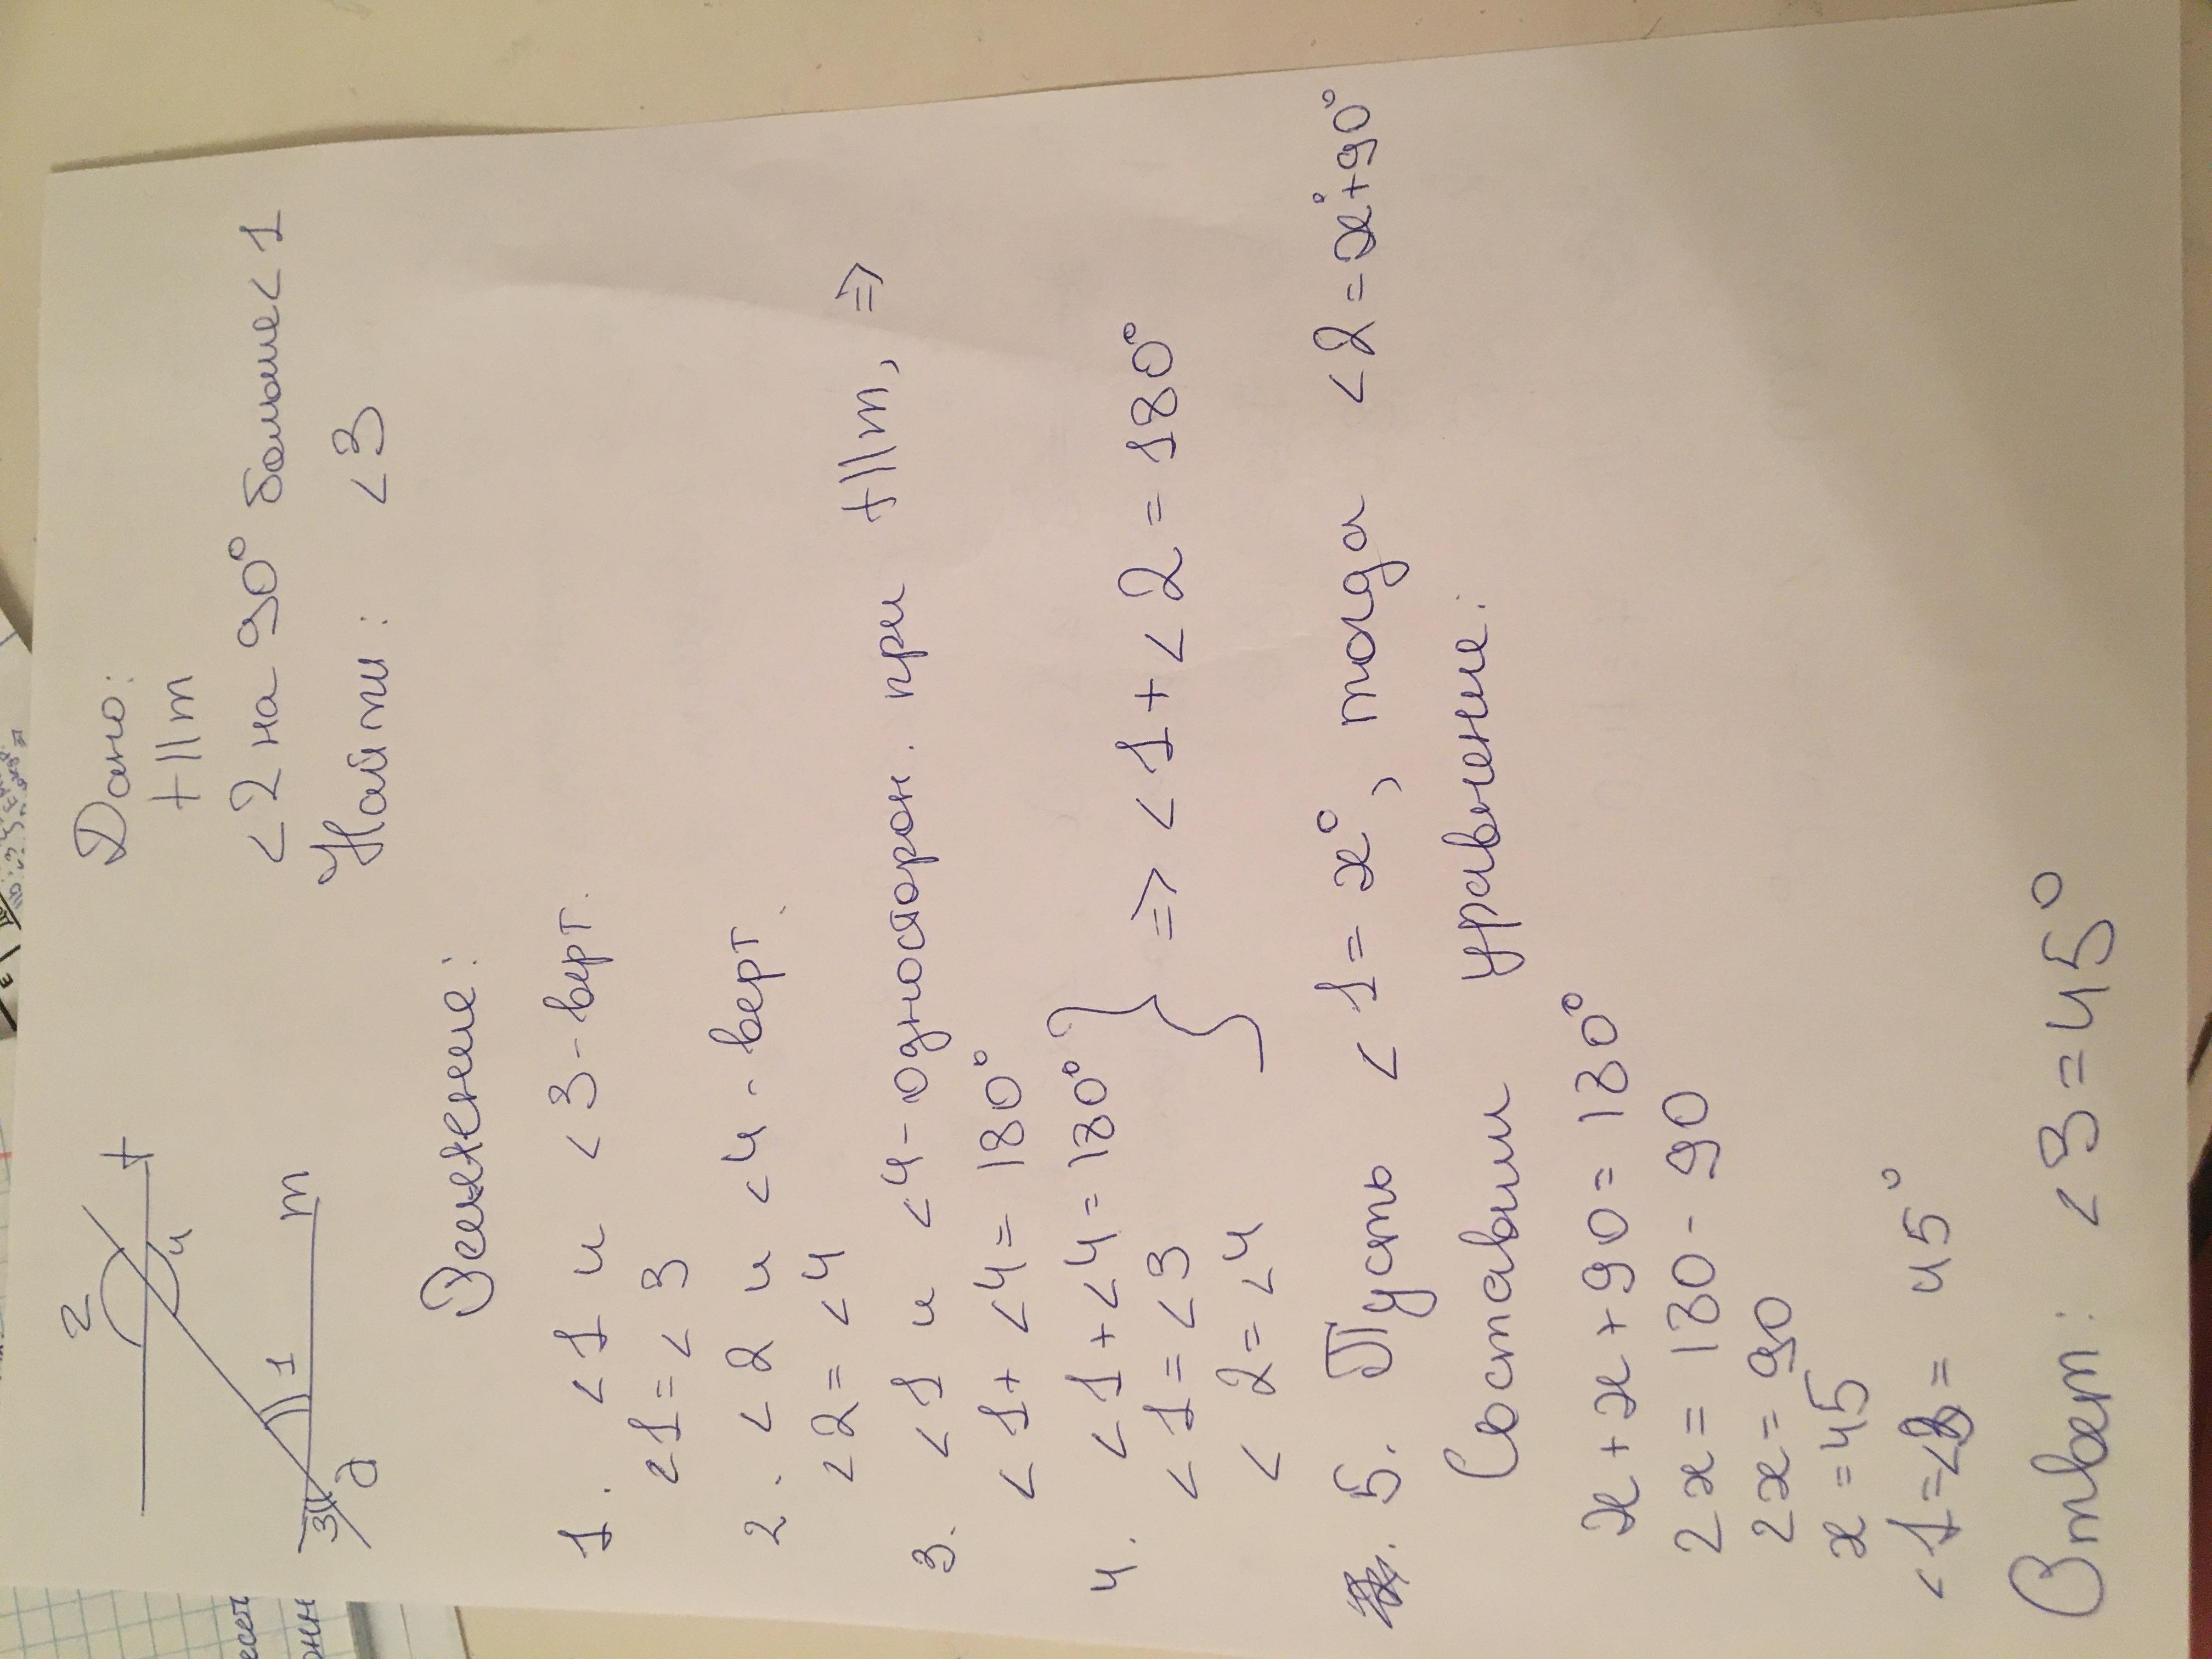 2
t
4
1
m
3
a
Дано:
t || m
<2 на 90° больше <1
Найти: <3
Решение:
1. <1 и <3 - верт.
<1 = <3
2. <2 и <4 - верт.
<2 = <4
3. <1 и <4 - односторон. при t || m, =>
<1 + <4 = 180°
4. <1 + <4 = 180° } => <1 + <2 = 180°
<1 = <3
<2 = <4
5. Пусть <1 = x°, тогда <2 = x° + 90°
Составим уравнение:
x + x + 90 = 180°
2x = 180 - 90
2x = 90
x = 45
<1 = <3 = 45°
Ответ: <3 = 45°